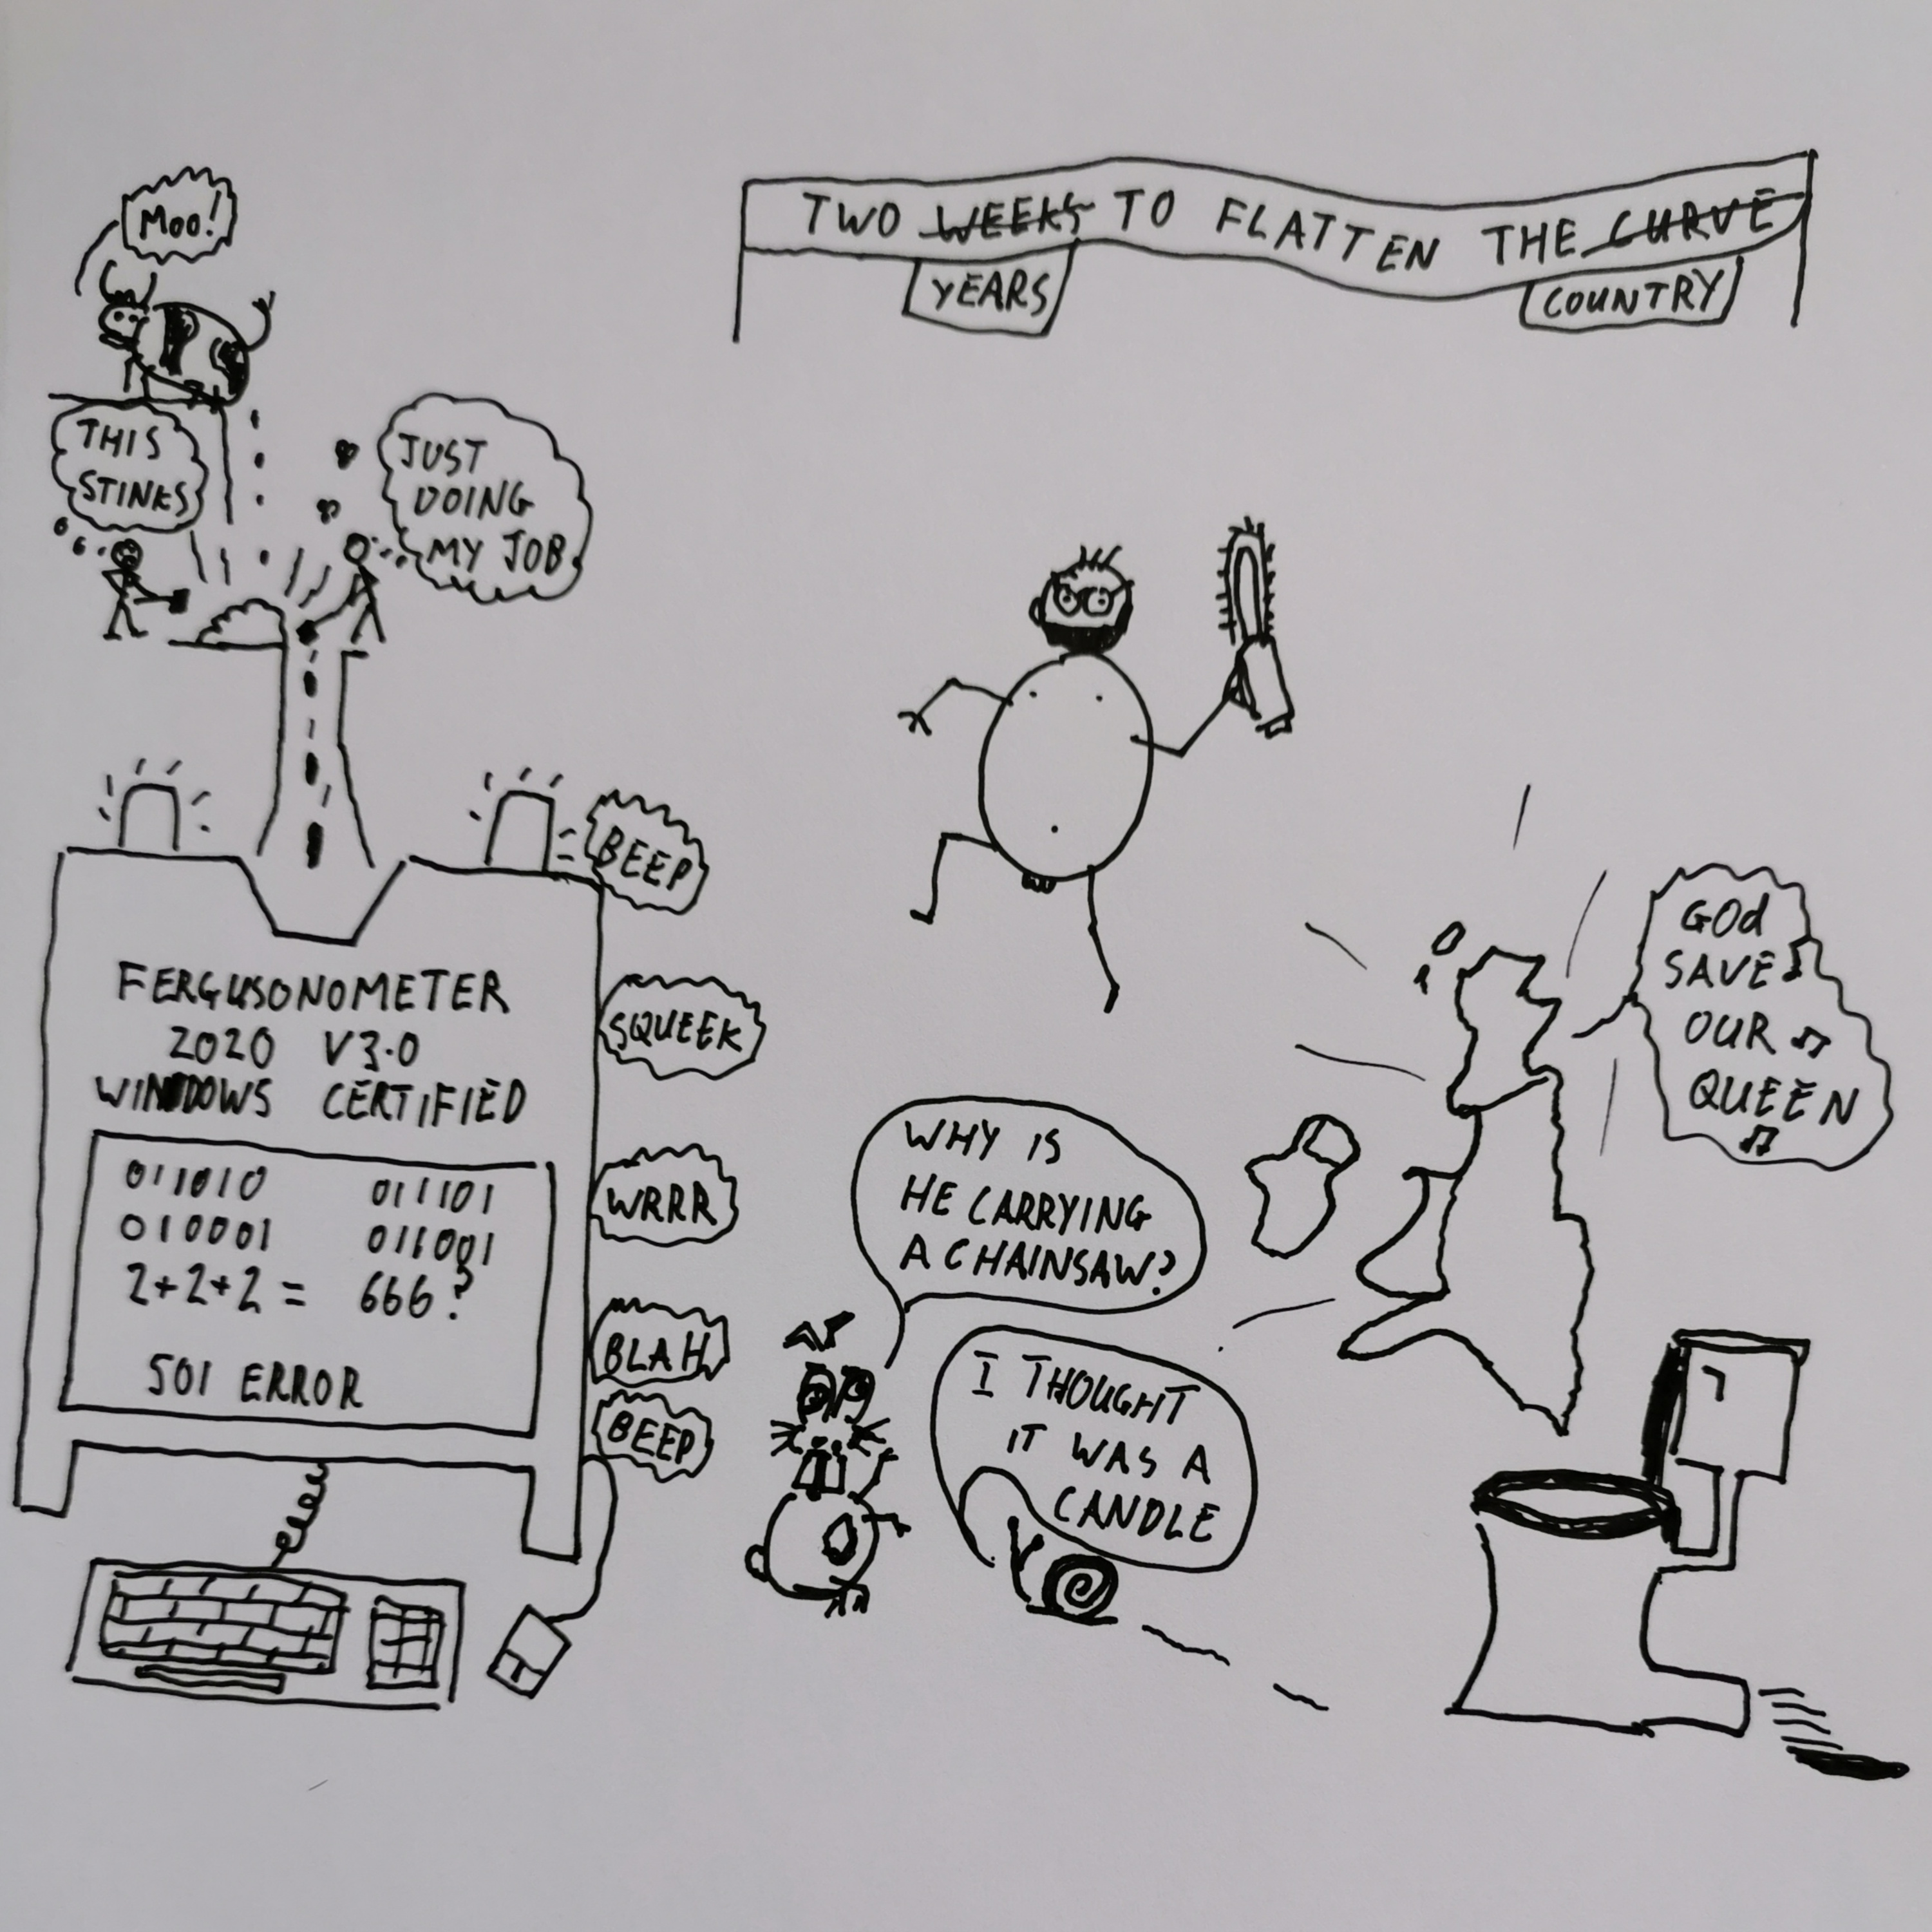 MOO!
TWO WEEKS TO FLATTEN THE CURVE
YEARS
COUNTRY
THIS
STINKS
JUST
DOING
MY JOB
BEEP
FERGUSONOMETER
2020 V3.0
WINDOWS CERTIFIED
011010 011101
010001 011001
2+2+2 = 666?
501 ERROR
SQUEEK
WRRR
BLAH
BEEP
WHY IS
HE CARRYING
A CHAINSAW?
I THOUGHT
IT WAS A
CANDLE
GOd
SAVE
OUR
QUEEN